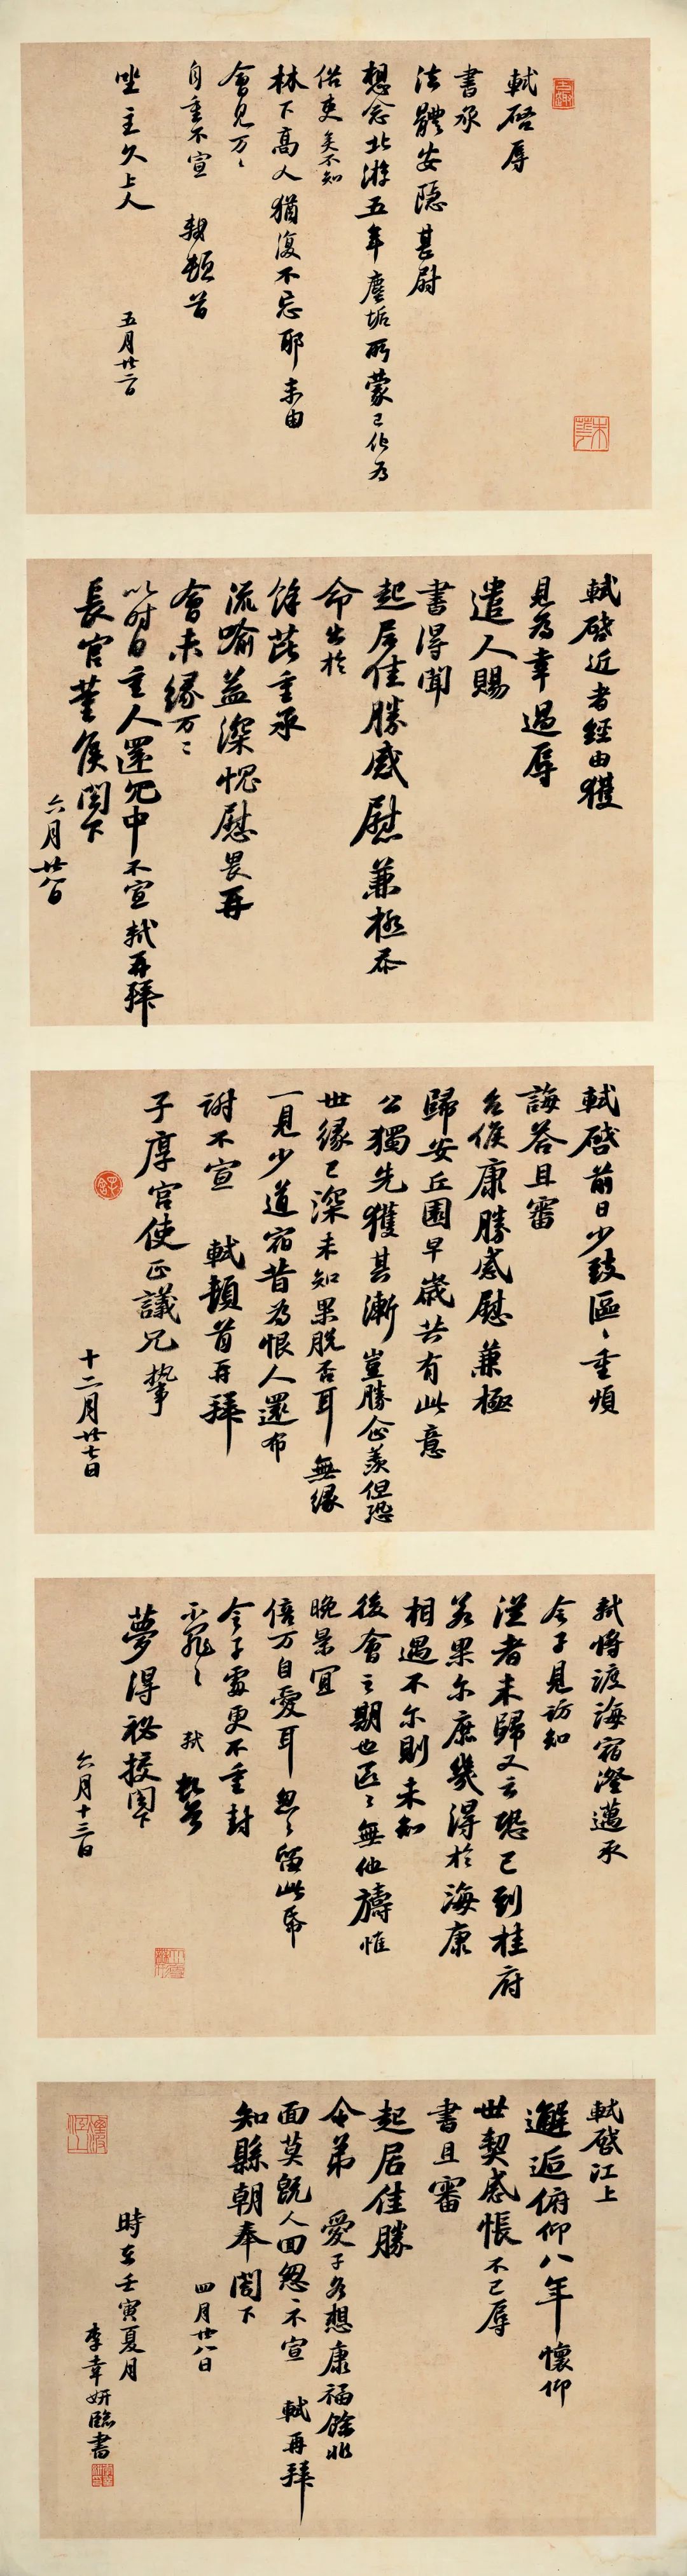 軾啓辱
書承
法體安隱甚尉
想念北游五年塵垢所蒙已化為
俗吏矣不知
林下高人猶復不忘耶未由
會見万〻
自重不宣　軾頓首
坐主久上人
五月廿二日
軾啓近者經由獲
見為幸過辱
遣人賜
書得聞
起居佳勝感慰兼極忝
命出於
餘芘重承
流喻益深愧慰畏再
會未緣万〻
以時自重人還冗中不宣軾再拜
長官董侯閣下
六月廿八日
軾啓前日少致區〻重煩
誨荅且審
台候康勝感慰兼極
歸安丘園早歲共有此意
公獨先獲其漸豈勝企羨但恐
世緣已深未知果脫否耳無緣
一見少道宿昔為恨人還布
謝不宣　軾頓首再拜
子厚宮使正議兄執事
十二月廿七日
軾將渡海宿澄邁承
令子見訪知
從者未歸又云恐已到桂府
若果尔庶幾得於海康
相遇不尔則未知
後會之期也區〻無他禱惟
晚景宜
倍万自愛耳怱〻留此帋
令子處更不重封
不罪〻　軾頓首
夢得祕挍閣下
六月十三日
軾啓江上
邂逅俯仰八年懷仰
世契感悵不已辱
書且審
起居佳勝
令弟　愛子各想康福餘非
面莫既人回怱〻不宣　軾再拜
知縣朝奉閣下
四月廿八日
時在壬寅夏月
李幸妍臨書